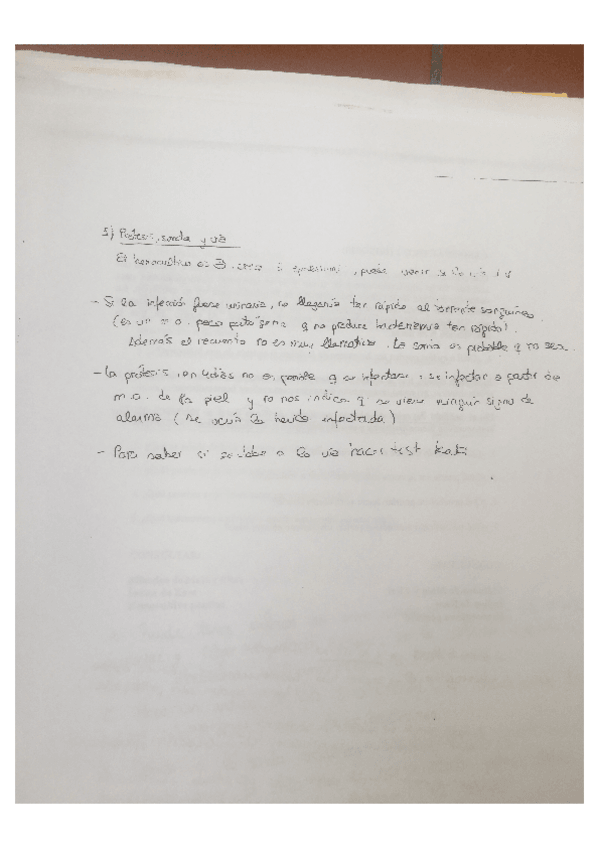 5) Protesis, sonda y vía
El hemocultivo es , puede venir de la
- Si la infección fuese urinaria, no llegaría tan rápido al torrente sanguíneo
(es un m.o. poco patógeno y no produce bacteriemia tan rápido).
Además el recuento no es muy llamativo. La sonda es probable q no sea.
- La prótesis, en 4 días no es posible q se infectase, se infectar a partir de
m.o. de la piel y no nos indican q se viese ningún signo de
alarma (se vería la herida infectada)
- Para saber si se debe a la vía hacer test